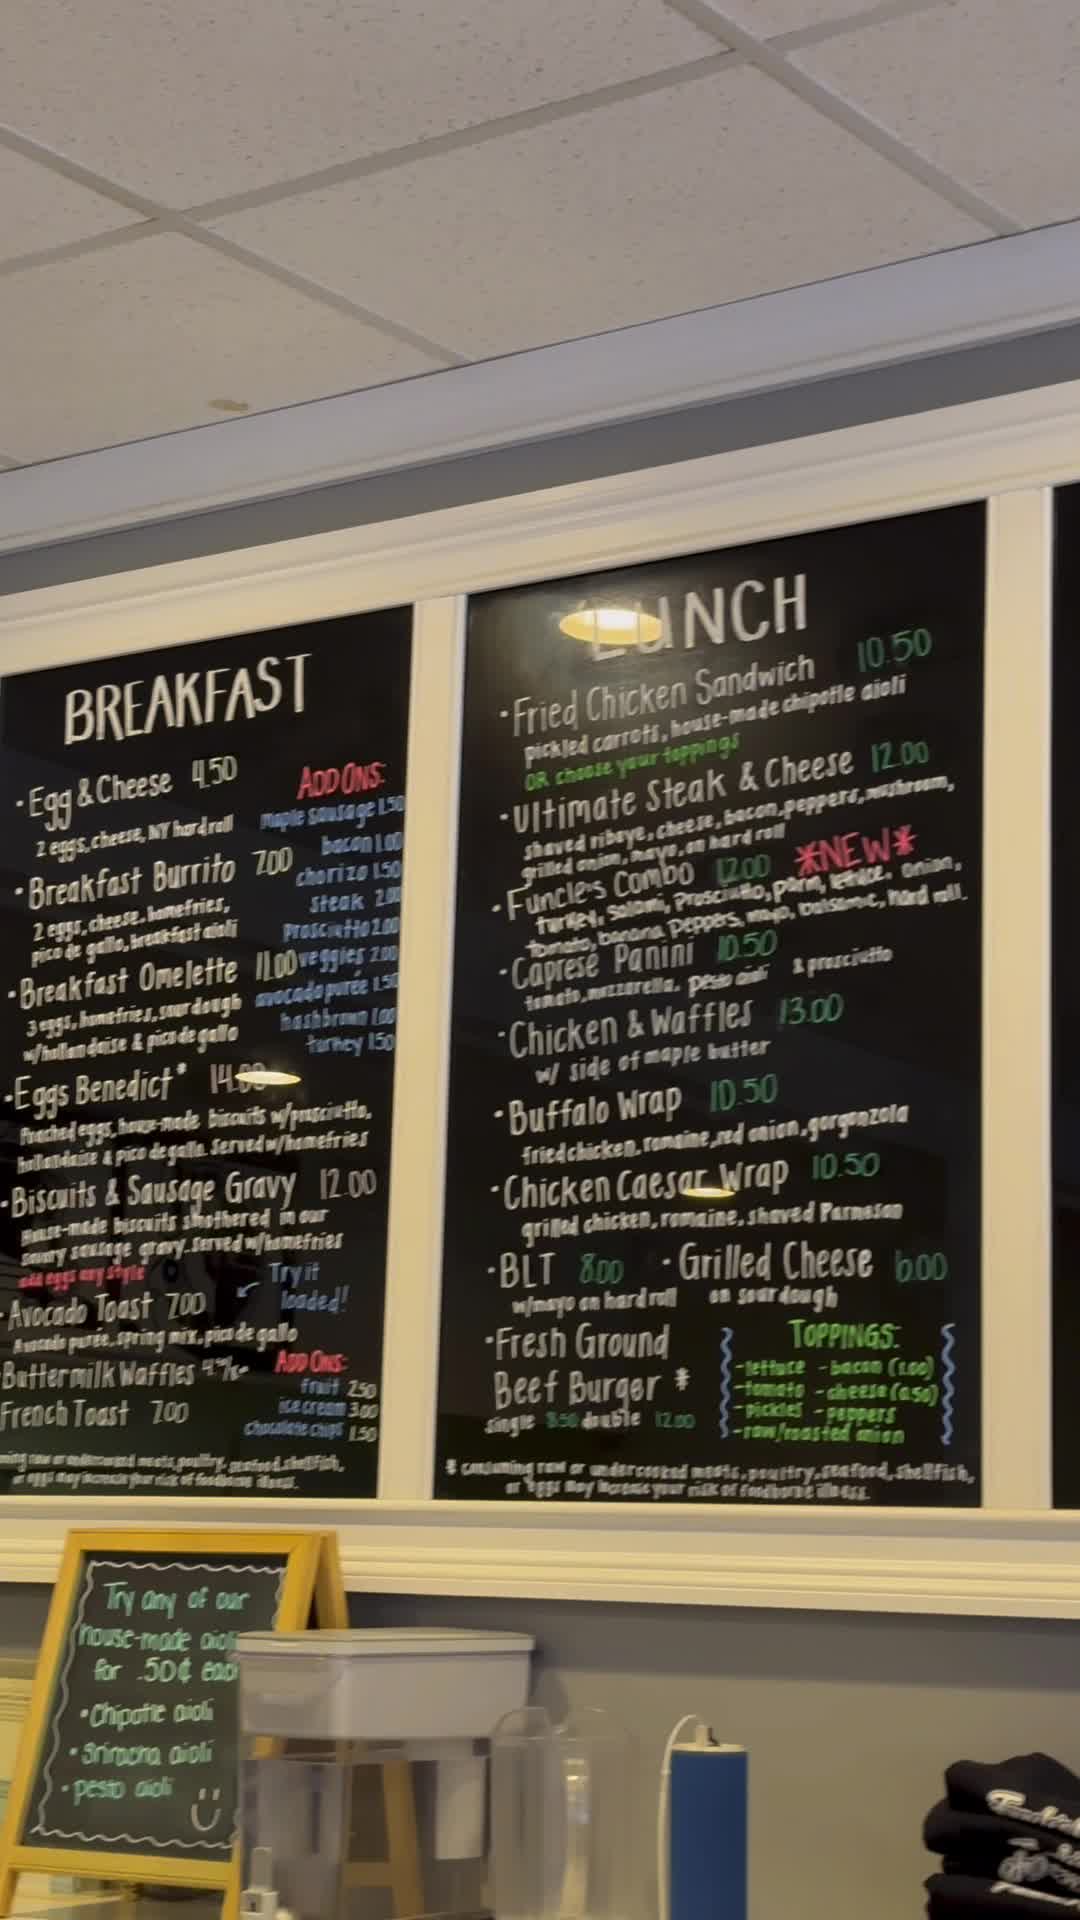 BREAKFAST
• Egg & Cheese 4.50
2 eggs, cheese, NY hard roll
• Breakfast Burrito 7.00
2 eggs, cheese, homefries,
pico de gallo, breakfast aioli
• Breakfast Omelette 11.00
3 eggs, homefries, sourdough
w/hollandaise & pico de gallo
• Eggs Benedict* 14.00
Poached eggs, house-made biscuits w/prosciutto,
hollandaise & pico de gallo. Served w/homefries
• Biscuits & Sausage Gravy 12.00
House-made biscuits smothered in our
savory sausage gravy. Served w/homefries
add eggs any style
Try it
loaded!
• Avocado Toast 7.00
Avocado purée, spring mix, pico de gallo
Buttermilk Waffles
French Toast 7.00
ADD ONS:
maple sausage 1.50
bacon 1.00
chorizo 1.50
steak 2.00
prosciutto 2.00
veggies 2.00
avocado purée 1.50
hashbrown 1.00
turkey 1.50
ADD ONS:
fruit 2.50
ice cream 3.00
chocolate chips 1.50
raw or undercooked meats, poultry, seafood, shellfish,
or eggs may increase your risk of foodborne illness.
LUNCH
• Fried Chicken Sandwich 10.50
pickled carrots, house-made chipotle aioli
OR choose your toppings
• Ultimate Steak & Cheese 12.00
shaved ribeye, cheese, bacon, peppers, mushroom,
grilled onion, mayo, on hard roll
• Funcle's Combo 12.00 *NEW*
turkey, salami, prosciutto, parm, lettuce, onion,
tomato, banana peppers, mayo, balsamic, hard roll.
• Caprese Panini 10.50
tomato, mozzarella, pesto aioli & prosciutto
• Chicken & Waffles 13.00
w/ side of maple butter
• Buffalo Wrap 10.50
fried chicken, romaine, red onion, gorgonzola
• Chicken Caesar Wrap 10.50
grilled chicken, romaine, shaved Parmesan
• BLT 8.00 • Grilled Cheese 6.00
w/mayo on hard roll on sourdough
• Fresh Ground
Beef Burger *
single 8.50 double 12.00
TOPPINGS:
-lettuce -bacon (1.00)
-tomato -cheese (0.50)
-pickles -peppers
-raw/roasted onion
* consuming raw or undercooked meats, poultry, seafood, shellfish,
or eggs may increase your risk of foodborne illness.
Try any of our
house-made aioli
for .50¢ each
• Chipotle aioli
• Sriracha aioli
• pesto aioli